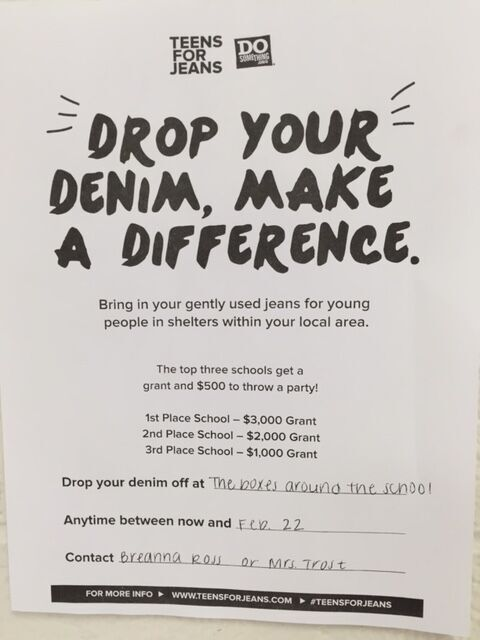 TEENS
FOR
JEANS
DO
SOMETHING
DROP YOUR
DENIM, MAKE
A DIFFERENCE.
Bring in your gently used jeans for young
people in shelters within your local area.
The top three schools get a
grant and $500 to throw a party!
1st Place School – $3,000 Grant
2nd Place School – $2,000 Grant
3rd Place School – $1,000 Grant
Drop your denim off at The boxes around the school
Anytime between now and Feb. 22
Contact Breanna Ross or Mrs. Trost
FOR MORE INFO ▶ WWW.TEENSFORJEANS.COM ▶ #TEENSFORJEANS